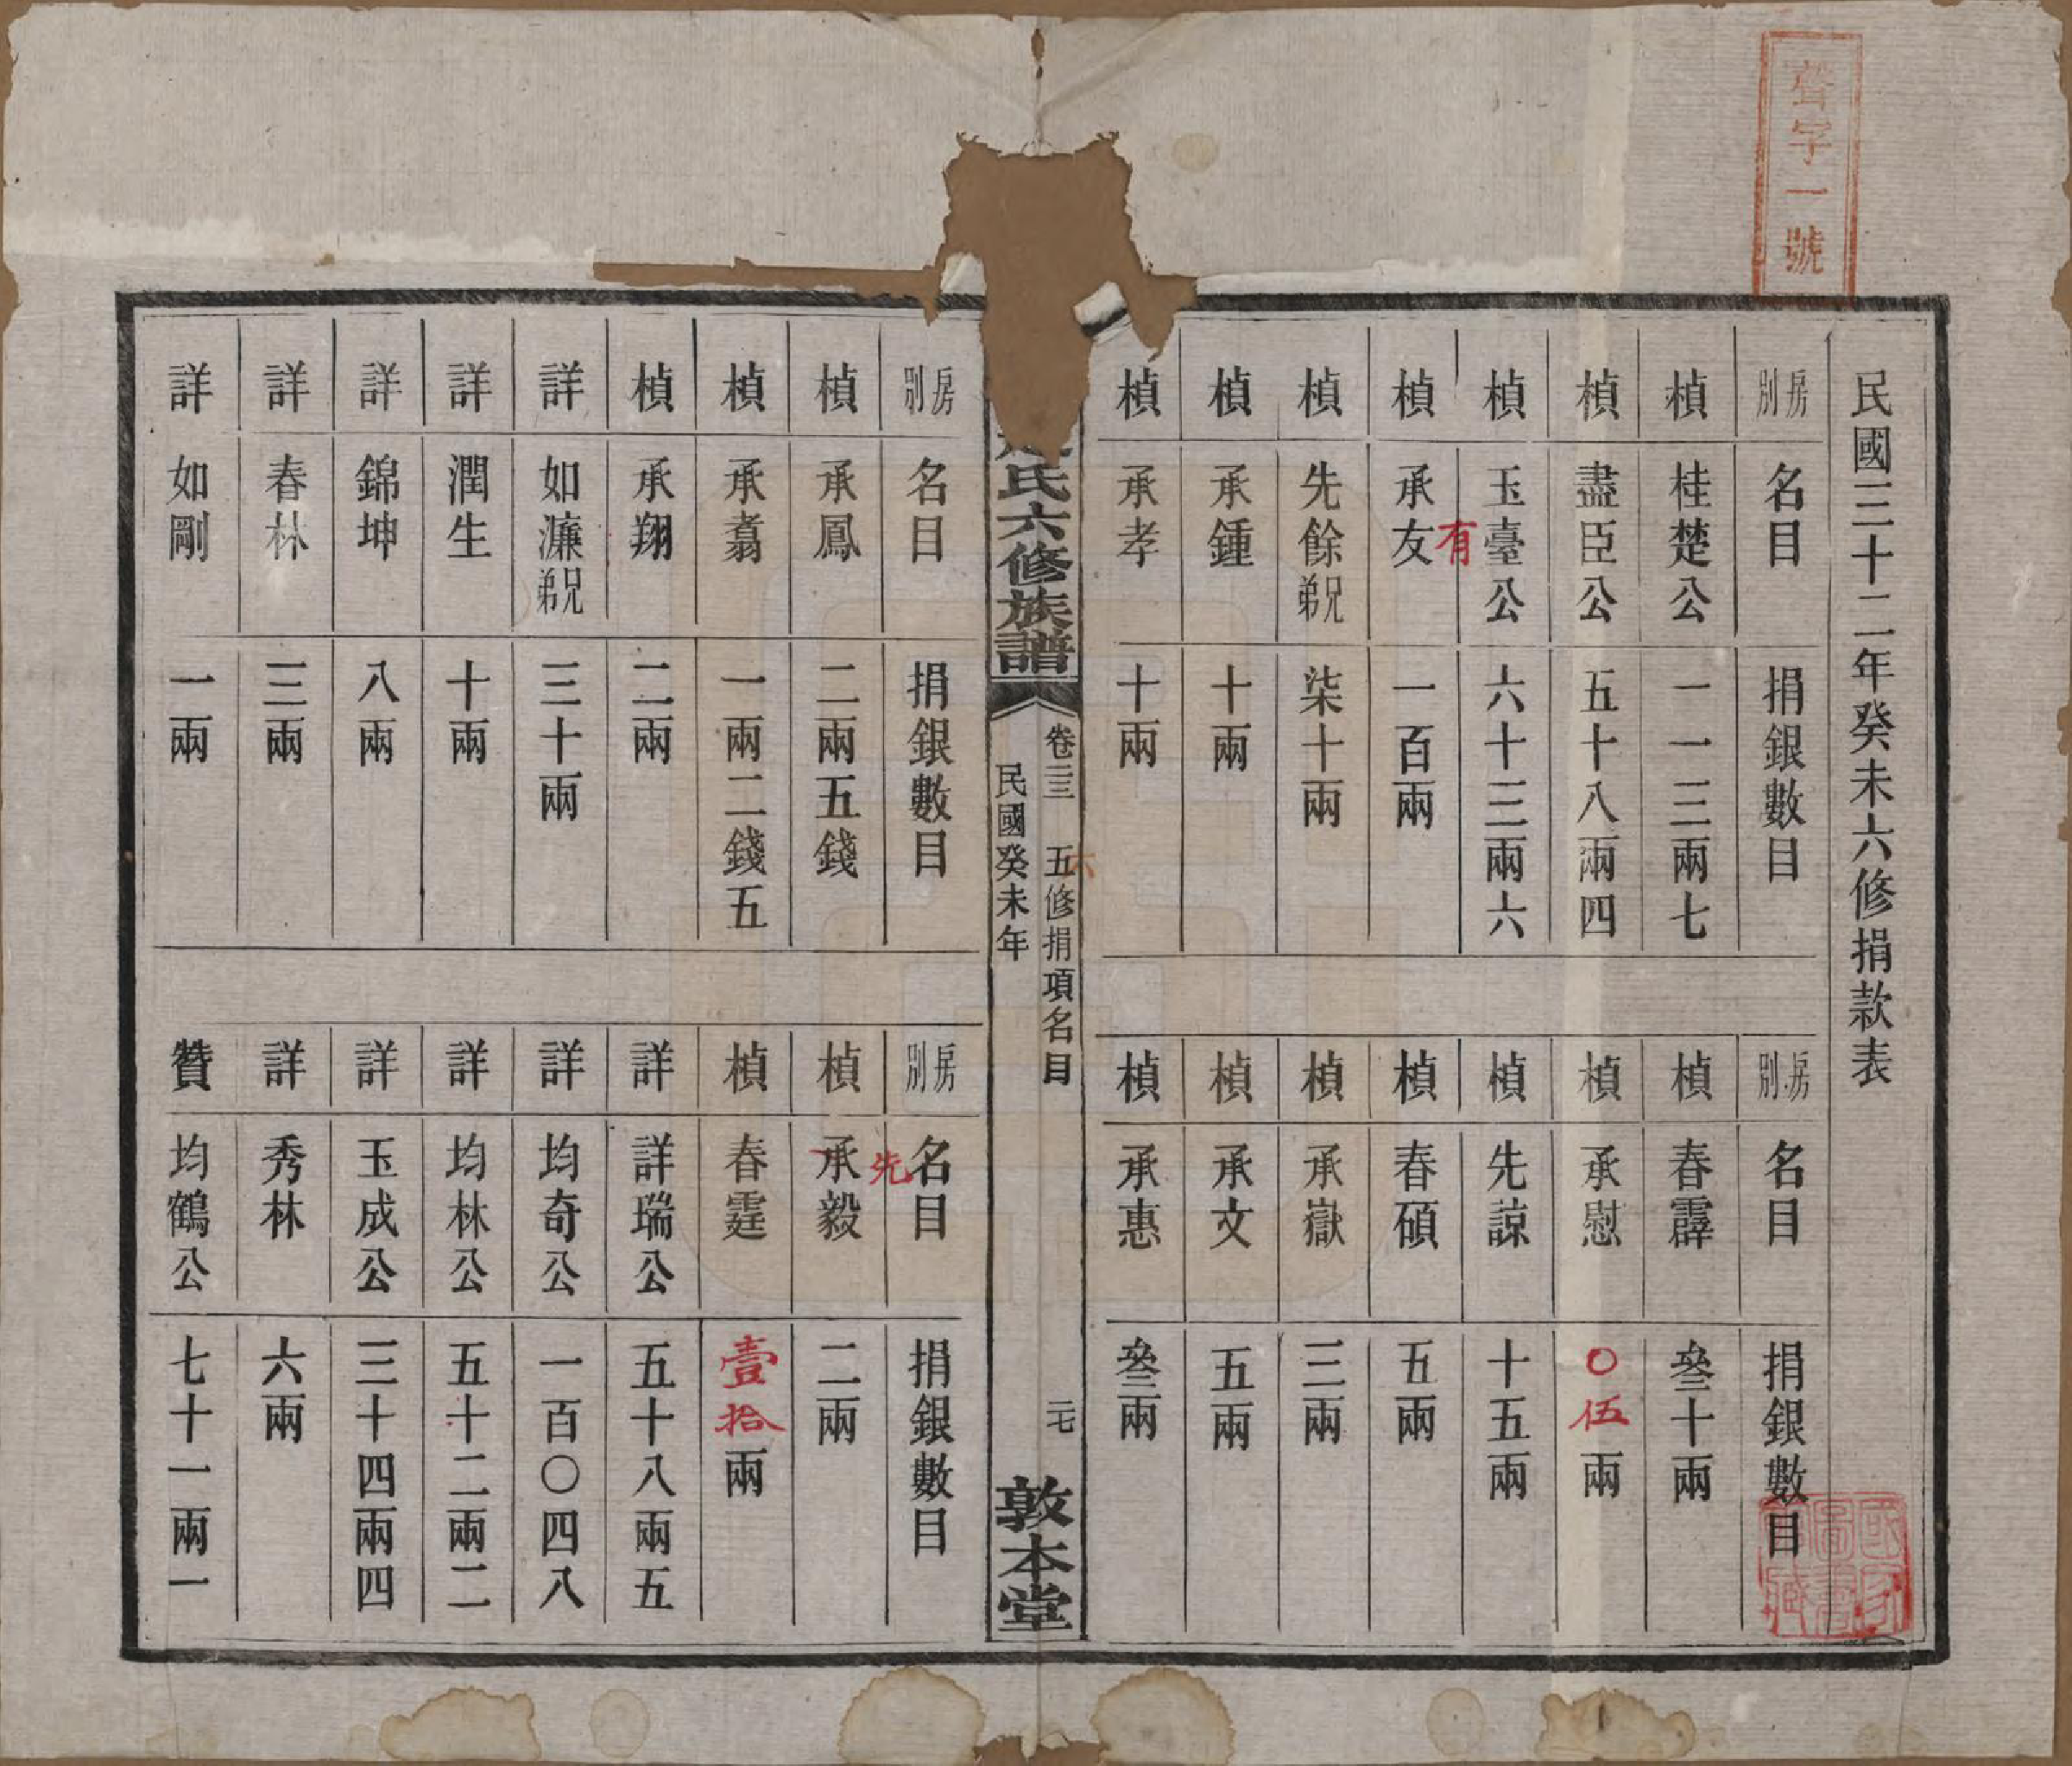 聲字一號
民國三十二年癸未六修捐款表
房別 名目 捐銀數目
楨 桂楚公 一一三兩七
楨 盡臣公 五十八兩四
楨 玉臺公 六十三兩六
楨 承友 有 一百兩
楨 先餘兄弟 柒十兩
楨 承鍾 十兩
楨 承孝 十兩
房別 名目 捐銀數目
楨 春霹 叄十兩
楨 承慰 〇伍兩
楨 先諒 十五兩
楨 春碩 五兩
楨 承嶽 三兩
楨 承文 五兩
楨 承惠 叄兩
氏六修族譜
卷三三 五修捐項名目 二七
六
民國癸未年
敦本堂
房別 名目 捐銀數目
楨 承鳳 二兩五錢
楨 承翥 一兩二錢五
楨 承翔 二兩
詳 如濂兄弟 三十兩
詳 潤生 十兩
詳 錦坤 八兩
詳 春林 三兩
詳 如剛 一兩
房別 名目 捐銀數目
楨 承毅 先 二兩
楨 春霆 壹拾兩
詳 詳瑞公 五十八兩五
詳 均奇公 一百〇四八
詳 均林公 五十二兩二
詳 玉成公 三十四兩四
詳 秀林 六兩
贊 均鶴公 七十一兩一